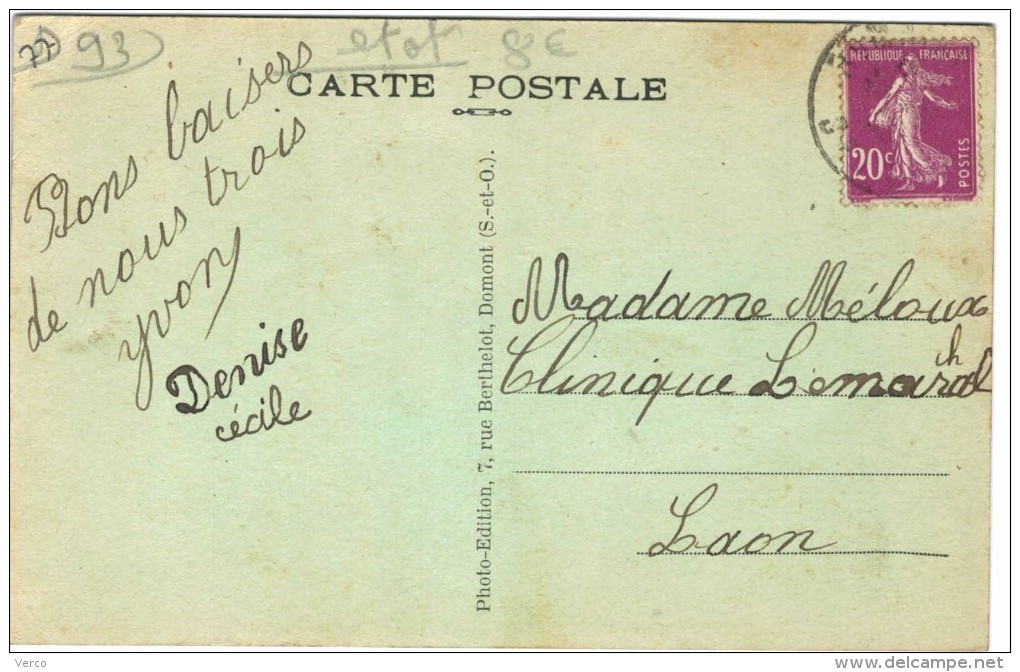 77 93
et ot 8€
CARTE POSTALE
RÉPUBLIQUE FRANÇAISE
20c
POSTES
Bons baisers
de nous trois
yvon
Denise
cécile
Photo-Edition, 7, rue Berthelot, Domont (S.-et-O.).
Madame Méloux
Clinique Lemarchal
Laon
Verco
www.delcampe.net